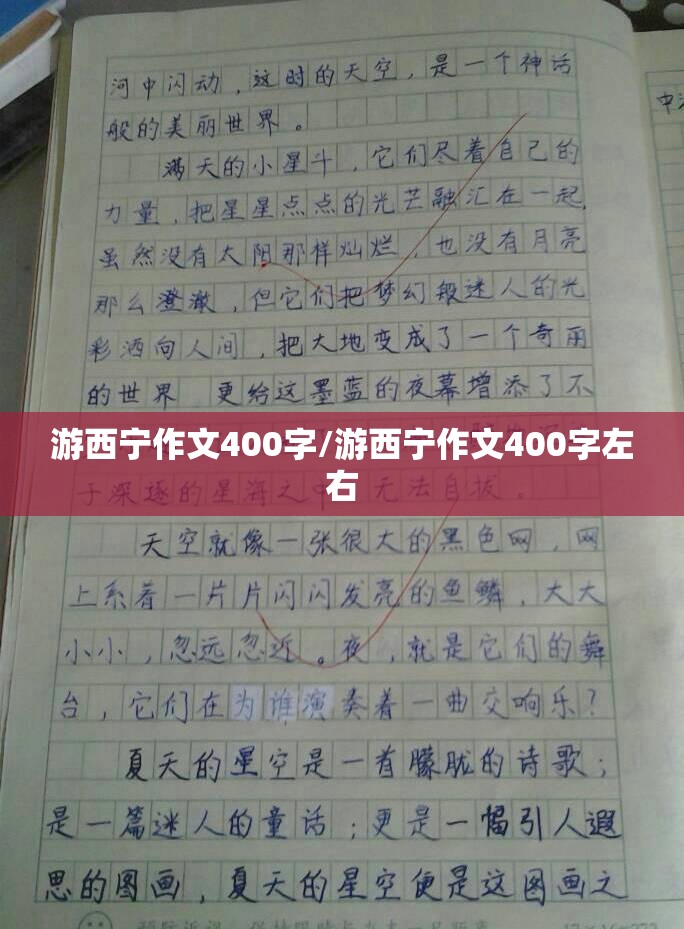 河中闪动，这时的天空，是一个神话
般的美丽世界。
满天的小星斗，它们尽着自己的
力量，把星星点点的光芒融汇在一起，
虽然没有太阳那样灿烂，也没有月亮
那么澄澈，但它们把梦幻般迷人的光
彩洒向人间，把大地变成了一个奇丽
的世界 更给这墨蓝的夜幕增添了不
游西宁作文400字/游西宁作文400字左
右
于深邃的星海之中 无法自拔。
天空就像一张很大的黑色网，网
上系着一片片闪闪发亮的鱼鳞，大大
小小，忽远忽近。夜，就是它们的舞
台，它们在为谁演奏着一曲交响乐？
夏天的星空是一首朦胧的诗歌；
是一篇迷人的童话；更是一幅引人遐
思的图画，夏天的星空便是这图画之